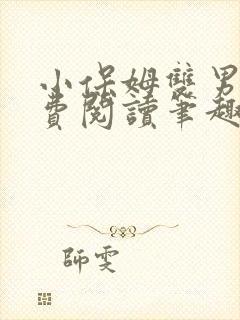 小保姆雙男
費閱讀筆趣
師雯